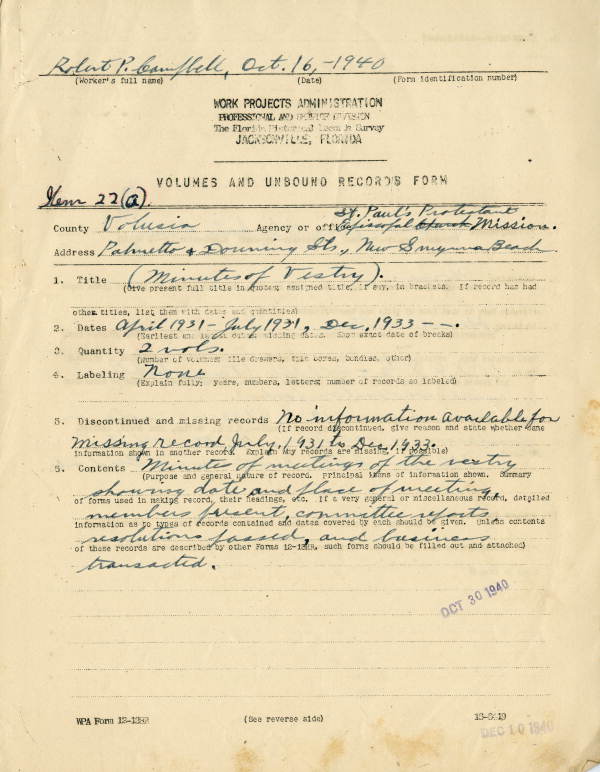 Robert P. Campbell, Oct. 16, -1940
(Worker's full name) (Date) (Form identification number)
WORK PROJECTS ADMINISTRATION
PROFESSIONAL AND SERVICE DIVISION
The Florida Historical Records Survey
JACKSONVILLE, FLORIDA
VOLUMES AND UNBOUND RECORDS FORM
Item 22(a).
St. Paul's Protestant
County Volusia Agency or office Episcopal Church Mission.
Address Palmetto & Downing Sts., New Smyrna Beach
1. Title (Minutes of Vestry).
(Give present full title in quotes; assigned title, if any, in brackets. If record has had
other titles, list them with dates and quantities)
2. Dates April 1931 - July 1931, Dec, 1933 - -.
(Earliest and latest dates; missing dates. Show exact date of breaks)
3. Quantity 2 vols.
(Number of volumes, file drawers, file boxes, bundles, other)
4. Labeling None
(Explain fully: years, numbers, letters; number of records so labeled)
5. Discontinued and missing records No information available for
(If record discontinued, give reason and state whether same
missing record July, 1931 to Dec. 1933.
information shown in another record. Explain why records are missing, if possible)
6. Contents Minutes of meetings of the vestry
(Purpose and general nature of record. Principal items of information shown. Summary
showing date and place of meeting,
of forms used in making record, their headings, etc. If a very general or miscellaneous record, detailed
members present, committee reports
information as to types of records contained and dates covered by each should be given. Unless contents
resolutions passed, and business
of these records are described by other Forms 12-13HR, such forms should be filled out and attached)
transacted.
OCT 30 1940
WPA Form 12-13HR (See reverse side)
DEC 10 1940